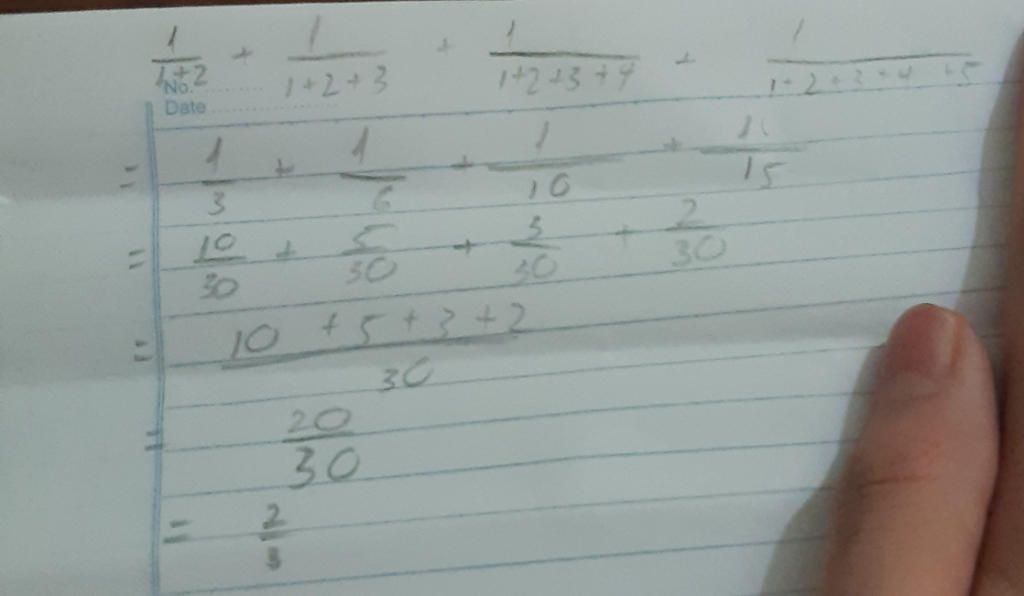 1/(1+2) + 1/(1+2+3) + 1/(1+2+3+4) + 1/(1+2+3+4+5)
No.
Date
= 1/3 + 1/6 + 1/10 + 1/15
= 10/30 + 5/30 + 3/30 + 2/30
= (10+5+3+2)/30
= 20/30
= 2/3